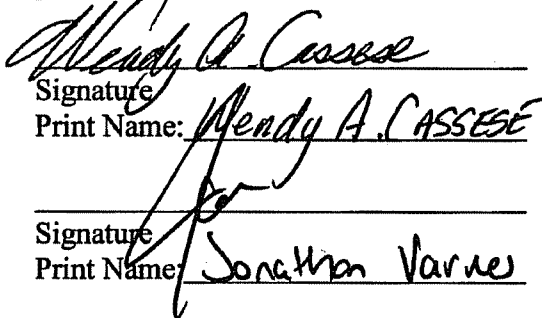 Wendy A. Cassese
Signature
Print Name: Wendy A. CASSESE
Signature
Print Name: Jonathon Varnes